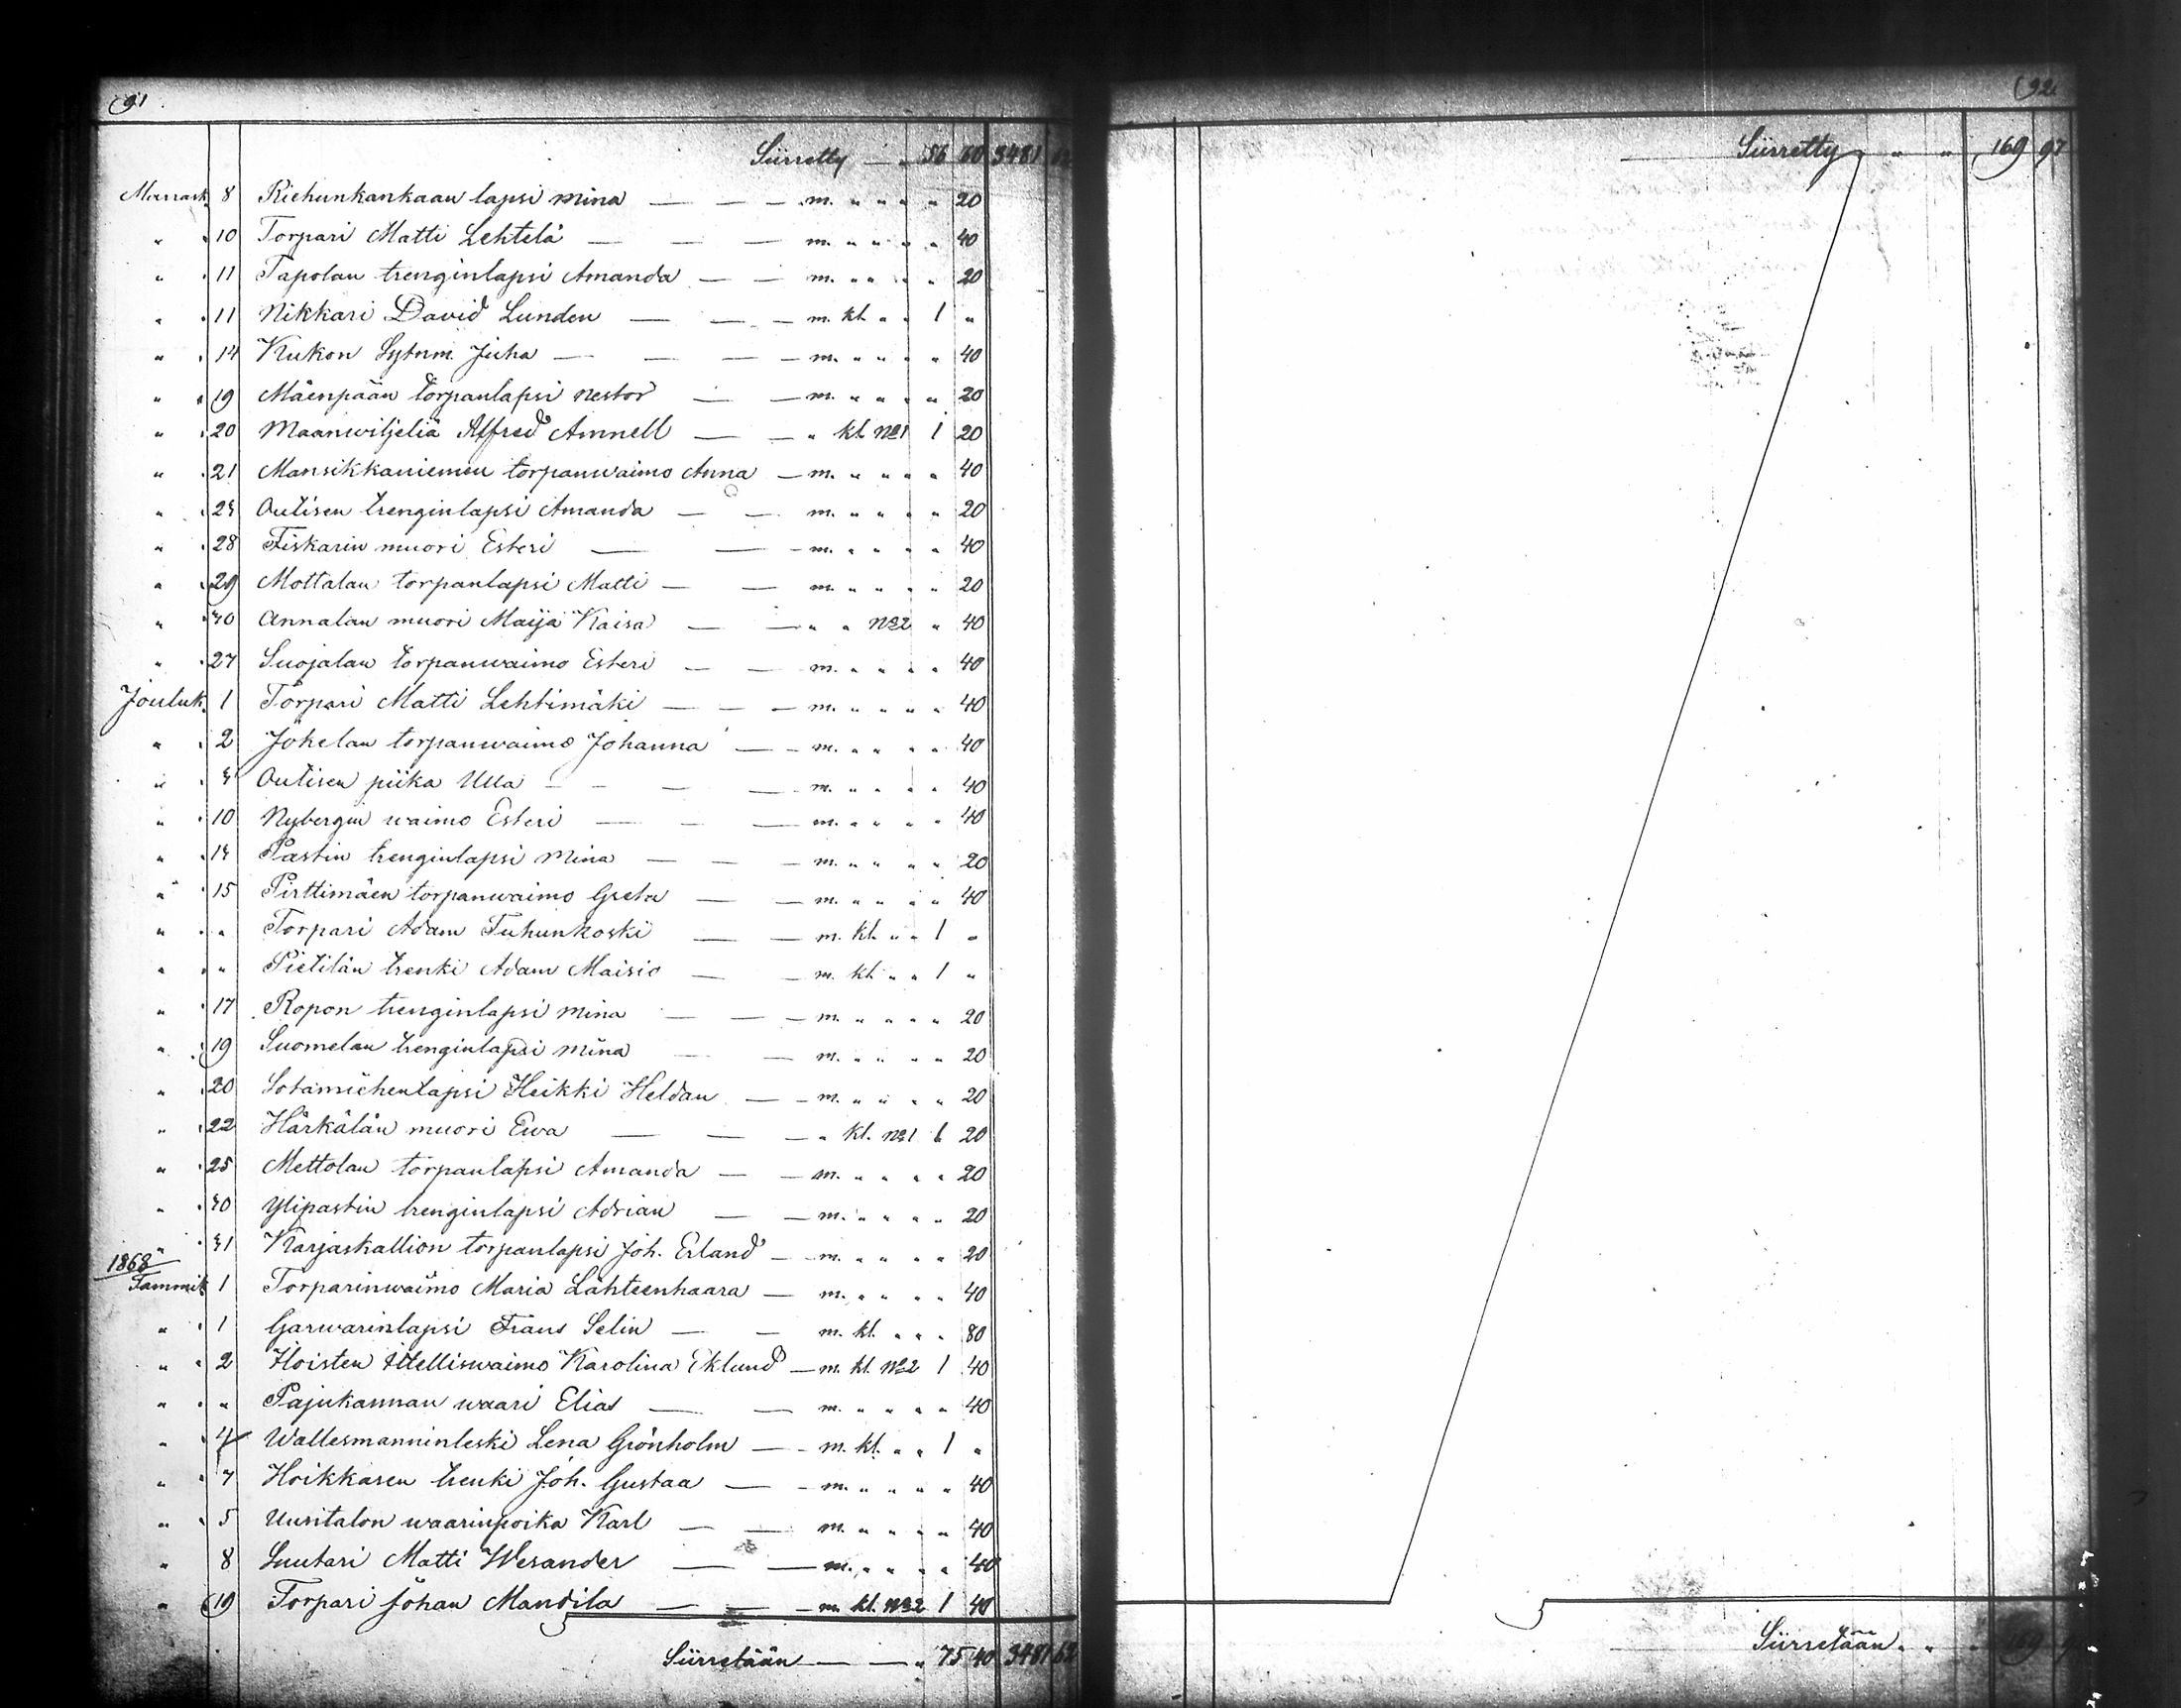 91
Siirretty — " 56 60 3481 62
Marrask. 8 Riehunkankaan lapsi Mina — — — m. " " " " 20
" " 10 Torpari Matti Lehtelä — — — m. " " " " 40
" " 11 Tapolan trenginlapsi Amanda — — m. " " " " 20
" " 11 Nikkari David Lunden — — — m. kl. " " 1 "
" " 14 Kukon Sytnm. Juha — — — m. " " " " 40
" " 19 Mäenpään torpanlapsi Nestor — — m. " " " " 20
" " 20 Maanwiljeliä Alfred Amnell — — " kl. No1 1 20
" " 21 Mansikkaniemen torpanwaimo Anna — m. " " " " 40
" " 23 Outisen trenginlapsi Amanda — — m. " " " " 20
" " 28 Fiskarin muori Esteri — — m. " " " " 40
" " 29 Mottalan torpanlapsi Matti — — m. " " " " 20
" " 30 Annalan muori Maija Kaisa — — " " No2 " 40
" " 27 Suojalan torpanwaimo Esteri — — m. " " " " 40
Jouluk. 1 Torpari Matti Lehtimäki — — — m. " " " " 40
" " 2 Jokelan torpanwaimo Johanna — — m. " " " " 40
" " 3 Outisen piika Ulla — — — — m. " " " " 40
" " 10 Nybergin waimo Esteri — — — m. " " " " 40
" " 13 Pastin trenginlapsi Mina — — — m. " " " " 20
" " 15 Pirttimäen torpanwaimo Greta — — m. " " " " 40
" " " Torpari Adam Tuhunkoski — — m. kl. " " 1 "
" " " Pietilän trenki Adam Maisio — — m. kl. " " 1 "
" " 17 Ropon trenginlapsi Mina — — — m. " " " " 20
" " 19 Suomelan trenginlapsi Mina — — m. " " " " 20
" " 20 Sotamiehenlapsi Heikki Heldan — — m. " " " " 20
" " 22 Härkälän muori Ewa — — — " kl. No1 1 20
" " 25 Mettolan torpanlapsi Amanda — — m. " " " " 20
" " 30 Ylipastin trenginlapsi Adrian — — m. " " " " 20
" " 31 Karjaskallion torpanlapsi Joh. Erland — m. " " " " 20
1868
Tammik. 1 Torparinwaimo Maria Lähteenhaara — m. " " " " 40
" " 1 Garwarinlapsi Frans Selin — — m. kl. " " " 80
" " 2 Hoisten itelliswaimo Karolina Eklund — m. kl. No2 1 40
" " " Pajukannan waari Elias — — m. " " " " 40
" " 4 Wallesmanninleski Lena Grönholm — — m. kl. " " 1 "
" " 7 Hoikkasen trenki Joh. Gustaa — — m. " " " " 40
" " 5 Uusitalon waarinpoika Karl — — m. " " " " 40
" 8 Suutari Matti Wesander — — m. " " " " 40
" 19 Torpari Johan Mandila — — — m. kl. No2 1 40
Siirretään — — " 75 40 3481 62
92
Siirretty " " " 169 97
Siirretään " " " 169